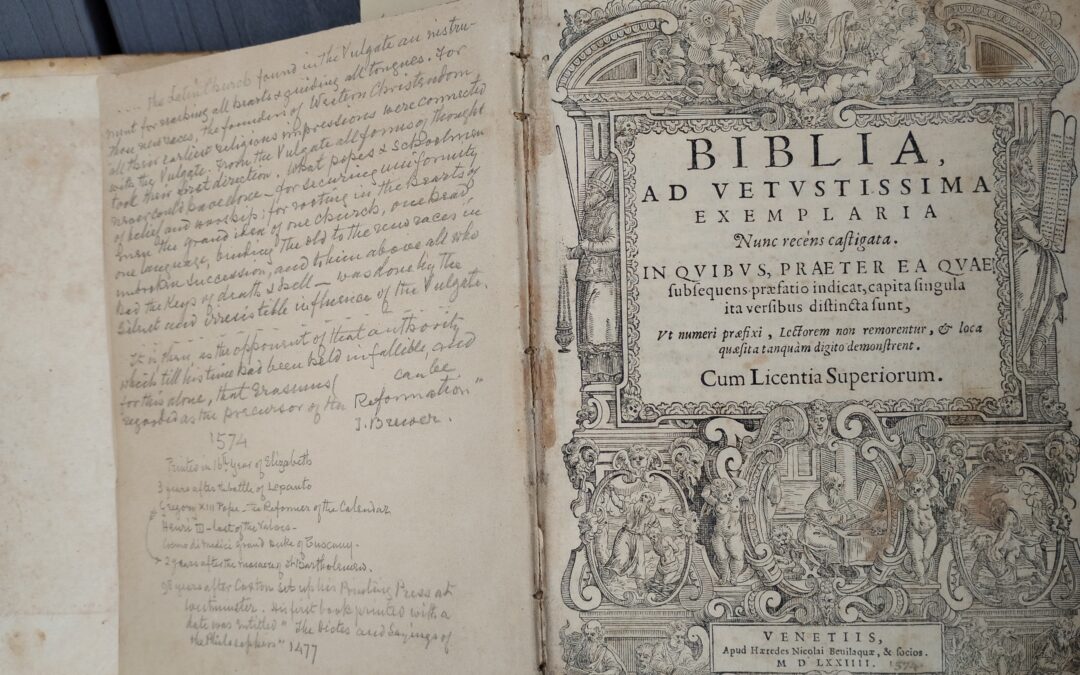 .... the Latin Church found in the Vulgate an instru-
ment for reaching all hearts & guiding all tongues. For
thou new races, the founders of Western Christendom,
all their earliest religious impressions were connected
with the Vulgate: From the Vulgate all forms of thought
took their first direction. What popes & schoolmen
never could have done — for securing uniformity
of belief and worship; for rooting in the hearts of
men the grand idea of one church, one head,
one language, binding the old to the new races in
unbroken succession, and to him above all who
had the Keys of death & hell — was done by the
silent and irresistible influence of the Vulgate.
It is then as the opponent of that authority
which till his time had been held infallible, and
for this alone, that Erasmus can be
regarded as the precursor of the Reformation"
J. Brewer.
1574
Printed in 16th year of Elizabeth
3 years after the battle of Lepanto
Gregory XIII Pope — the Reformer of the Calendar
Henri III — last of the Valois —
Cosmo di Medici Grand Duke of Tuscany.
2 years after the massacre of St Bartholomew.
98 years after Caxton set up his Printing Press at
Westminster. His first book printed with a
date was entitled "The Dictes and Sayings of
the Philosophers" 1477
BIBLIA,
AD VETVSTISSIMA
EXEMPLARIA
Nunc recèns castigata.
IN QVIBVS, PRAETER EA QVAE
subsequens præfatio indicat, capita singula
ita versibus distincta sunt,
Vt numeri præfixi, Lectorem non remorentur, & loca
quæsita tanquàm digito demonstrent.
Cum Licentia Superiorum.
VENETIIS,
Apud Hæredes Nicolai Beuilaquæ, & socios.
M D LXXIIII. 1574